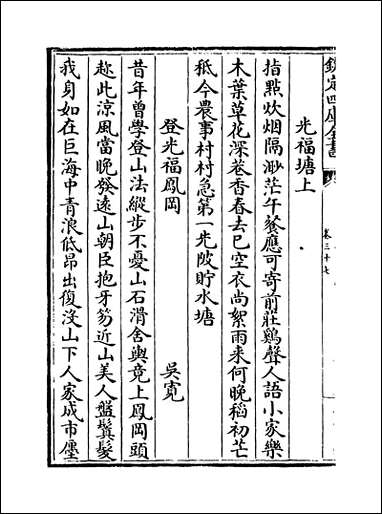 欽定四庫全書
卷三十七
光福塘上
指點炊烟隔渺茫午餐應可寄前莊鷄聲人語小家樂
木葉草花深巷香春去已空衣尚絮雨來何晚稻初芒
秪今農事村村急第一先陂貯水塘
登光福鳳岡 吳寛
昔年曽學登山法縱步不憂山石滑舍輿竟上鳳岡頭
趂此涼風當晚發遠山朝臣抱牙笏近山美人盤鬒髮
我身如在巨海中青浪低昂出復沒山下人家成市廛